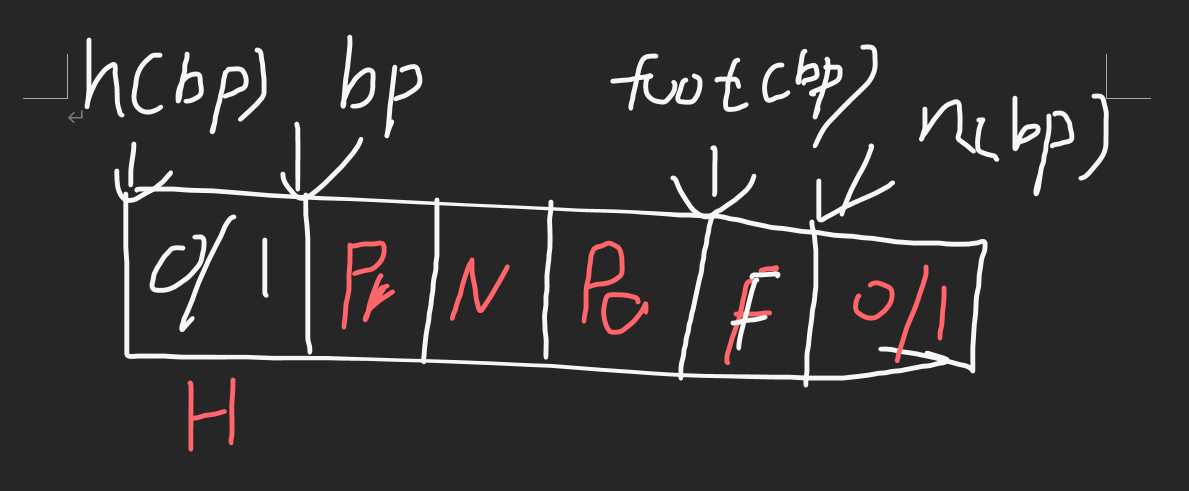 h(bp) bp foot(bp) n(bp)
0/1 Pr N Pa F 0/1
H